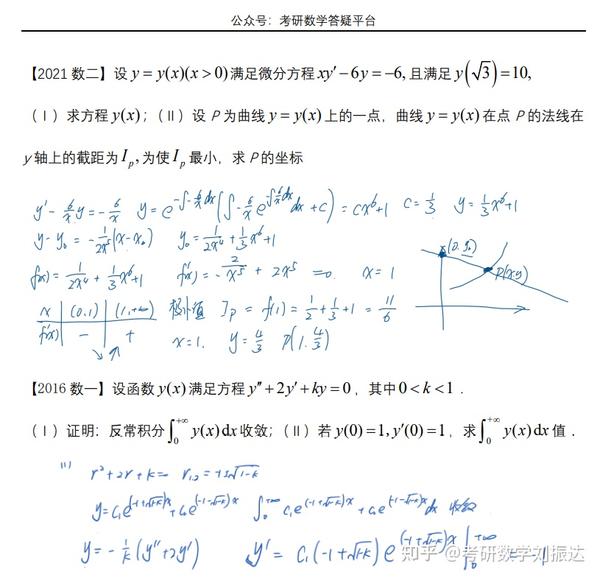 公众号：考研数学答疑平台
【2021 数二】设 y = y(x)(x > 0) 满足微分方程 xy′ − 6y = −6, 且满足 y(√3) = 10,
（Ⅰ）求方程 y(x)；（Ⅱ）设 P 为曲线 y = y(x) 上的一点，曲线 y = y(x) 在点 P 的法线在
y 轴上的截距为 I_p, 为使 I_p 最小，求 P 的坐标
y′ − 6/x y = −6/x  y = e^{-∫-6/x dx}(∫ -6/x e^{-∫6/x dx} dx + c) = cx⁶+1  c = 1/3  y = 1/3 x⁶+1
y − y₀ = −1/(2x⁵)(x − x₀)  y₀ = 1/(2x⁴) + 1/3 x⁶ + 1
(0, y₀)
P(x, y)
f(x) = 1/(2x⁴) + 1/3 x⁶ + 1  f′(x) = −2/x⁵ + 2x⁵ = 0  x = 1
x (0, 1) (1, +∞) 极小值 I_p = f(1) = 1/2 + 1/3 + 1 = 11/6
f′(x) − +  x = 1, y = 4/3  P(1, 4/3)
↘ ↗
【2016 数一】设函数 y(x) 满足方程 y″ + 2y′ + ky = 0，其中 0 < k < 1．
（Ⅰ）证明：反常积分 ∫₀^{+∞} y(x)dx 收敛；（Ⅱ）若 y(0) = 1, y′(0) = 1，求 ∫₀^{+∞} y(x)dx 值．
(1) r² + 2r + k = 0  r₁,₂ = −1±√(1−k)
y = c₁e^{(-1+√(1-k))x} + c₂e^{(-1-√(1-k))x}  ∫₀^{+∞} c₁e^{(-1+√(1-k))x} + c₂e^{(-1-√(1-k))x} dx 收敛
y = −1/k (y″ + 2y′)  y′ = c₁(−1+√(1−k)) e^{(-1+√(1-k))x} |₀^{+∞} = −1
知乎 @考研数学刘振达